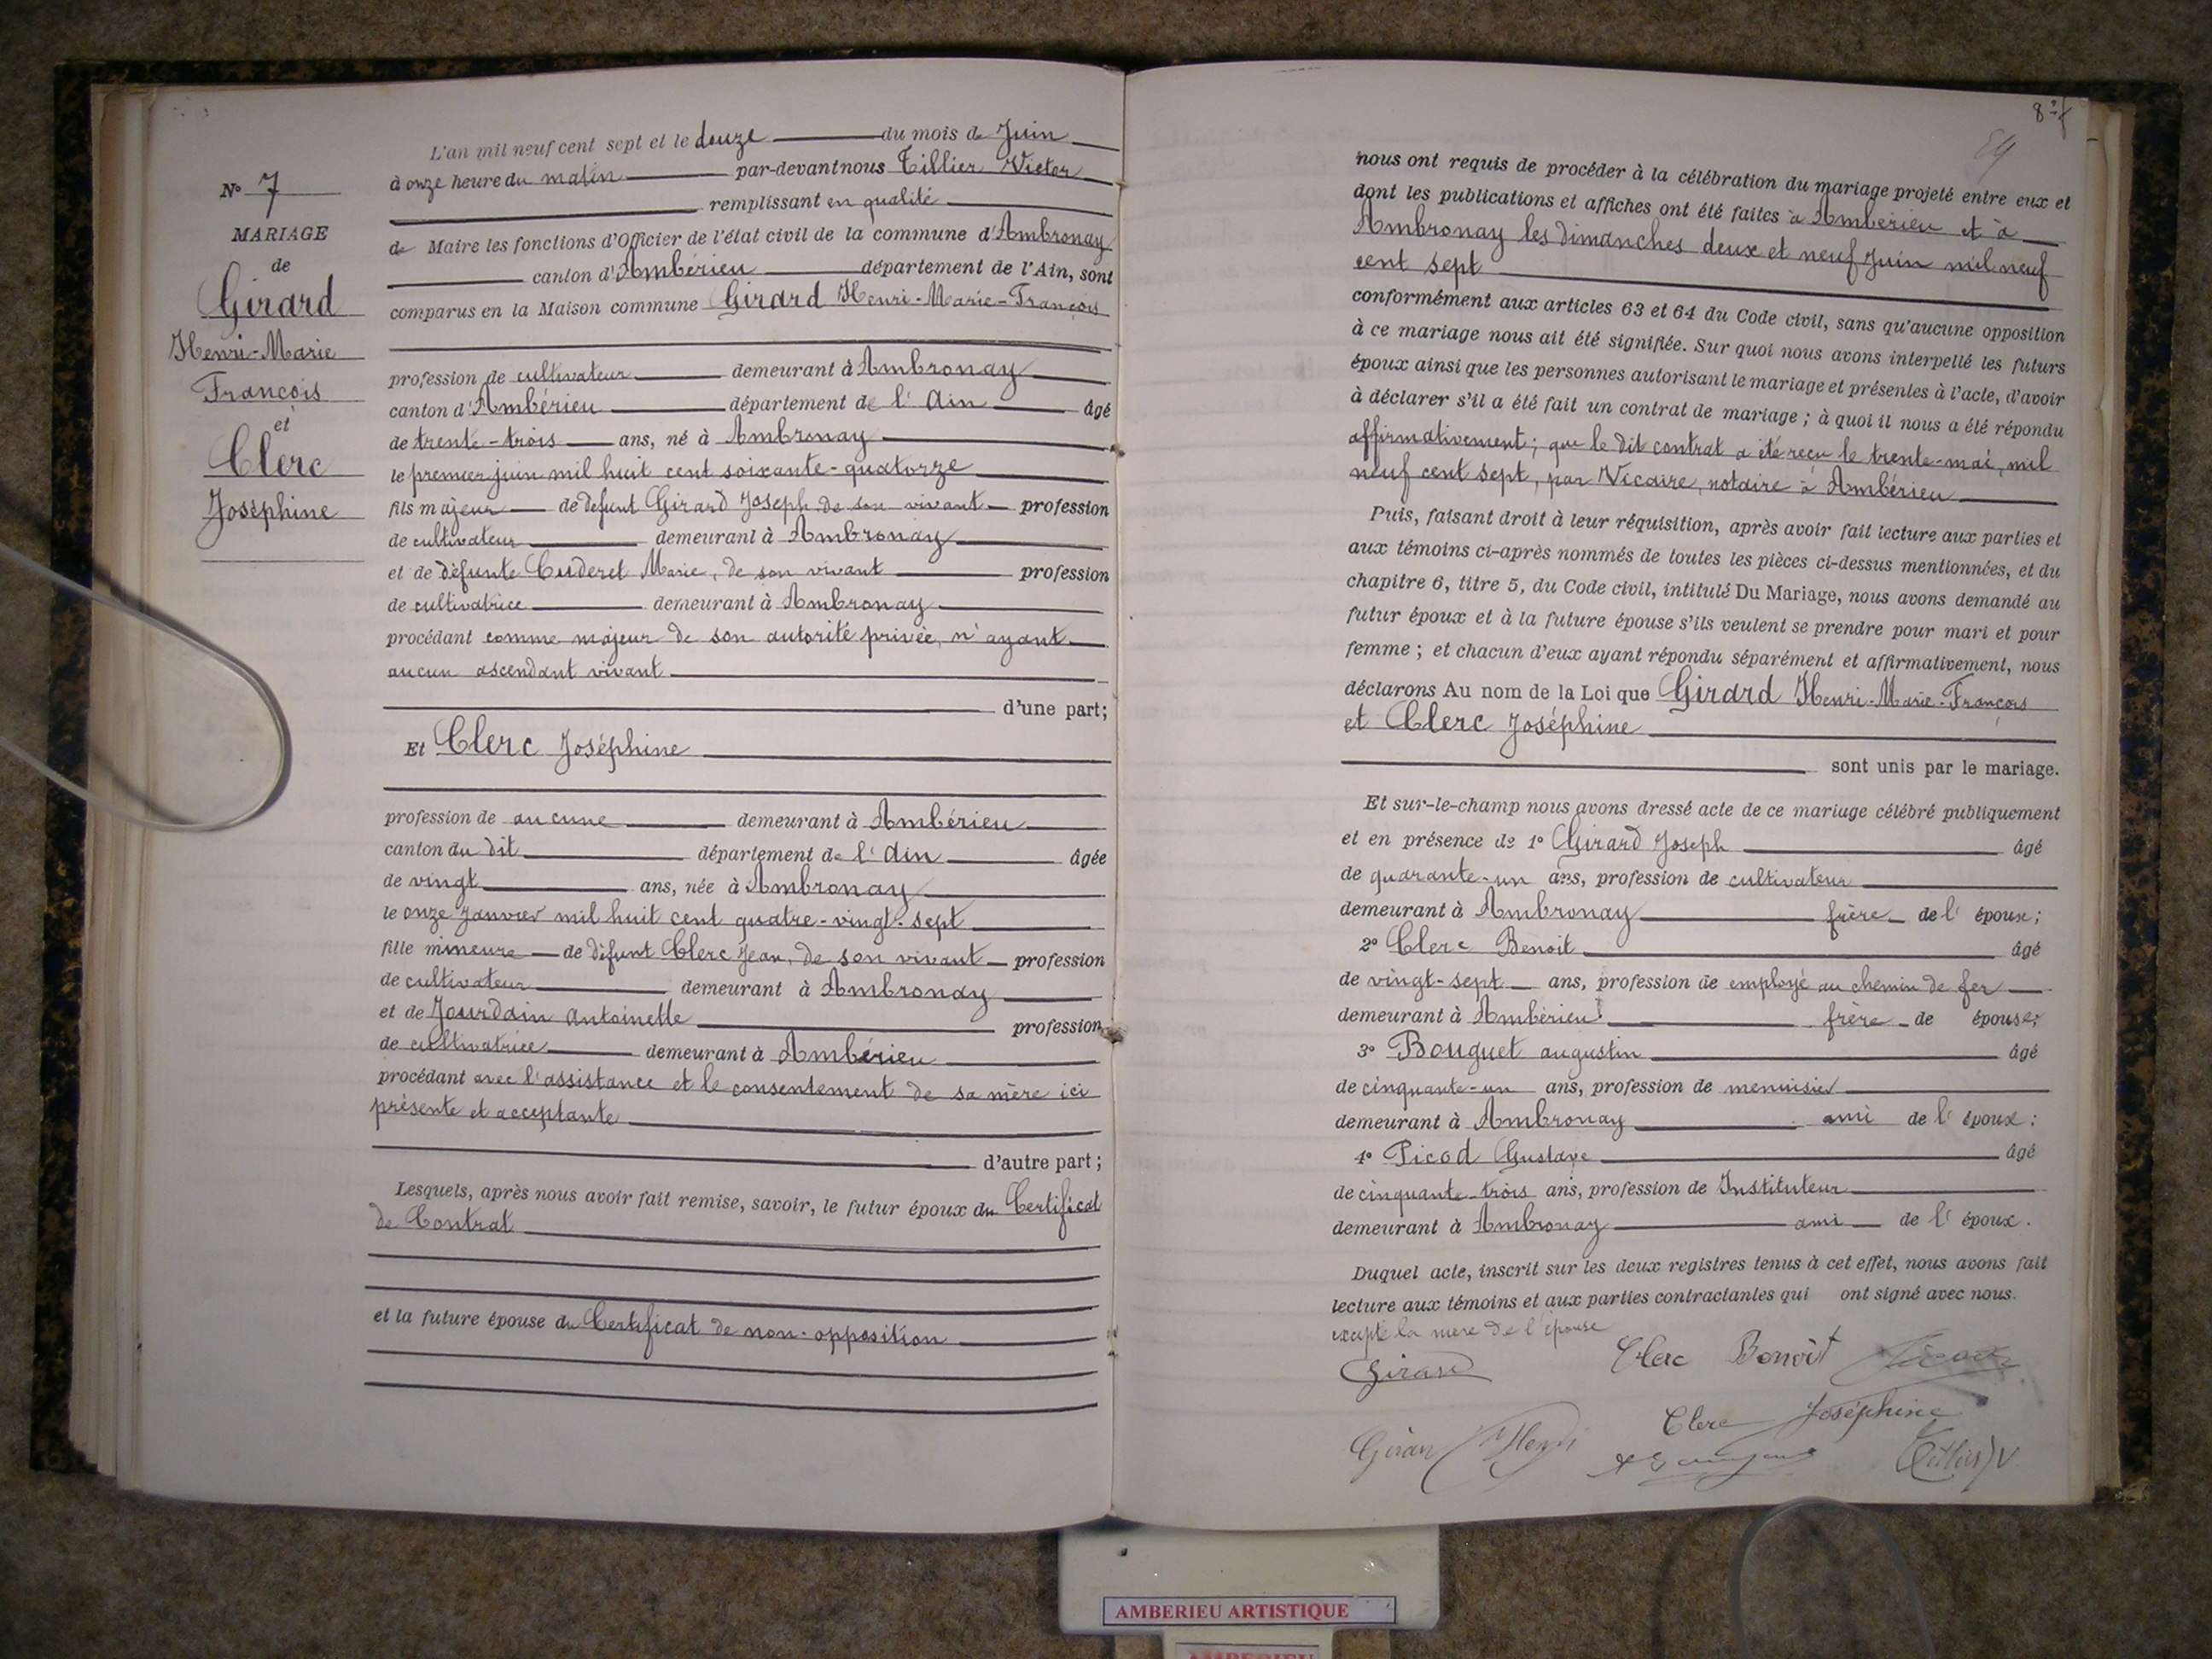 N° 7
MARIAGE
de
Girard
Henri-Marie
François
et
Clerc
Joséphine
L'an mil neuf cent sept et le douze du mois de Juin
à onze heure du matin par-devant nous Tillier Victor
remplissant en qualité
de Maire les fonctions d'Officier de l'état civil de la commune d'Ambronay
canton d'Ambérieu département de l'Ain, sont
comparus en la Maison commune Girard Henri-Marie-François
profession de cultivateur demeurant à Ambronay
canton d'Ambérieu département de l'Ain âgé
de trente-trois ans, né à Ambronay
le premier juin mil huit cent soixante-quatorze
fils majeur de défunt Girard Joseph de son vivant profession
de cultivateur demeurant à Ambronay
et de défunte Cuderet Marie, de son vivant profession
de cultivatrice demeurant à Ambronay
procédant comme majeur de son autorité privée, n'ayant
aucun ascendant vivant
d'une part;
Et Clerc Joséphine
profession de aucune demeurant à Ambérieu
canton du dit département de l'Ain âgée
de vingt ans, née à Ambronay
le onze Janvier mil huit cent quatre-vingt-sept
fille mineure de défunt Clerc Jean, de son vivant profession
de cultivateur demeurant à Ambronay
et de Jourdain Antoinette profession
de cultivatrice demeurant à Ambérieu
procédant avec l'assistance et le consentement de sa mère ici
présente et acceptante
d'autre part;
Lesquels, après nous avoir fait remise, savoir, le futur époux du Certificat
de Contrat
et la future épouse du Certificat de non-opposition
89
nous ont requis de procéder à la célébration du mariage projeté entre eux et
dont les publications et affiches ont été faites à Ambérieu et à
Ambronay les dimanches deux et neuf Juin mil neuf
cent sept
conformément aux articles 63 et 64 du Code civil, sans qu'aucune opposition
à ce mariage nous ait été signifiée. Sur quoi nous avons interpellé les futurs
époux ainsi que les personnes autorisant le mariage et présentes à l'acte, d'avoir
à déclarer s'il a été fait un contrat de mariage; à quoi il nous a été répondu
affirmativement; que le dit contrat a été reçu le trente-mai, mil
neuf cent sept, par Vicaire, notaire à Ambérieu
Puis, faisant droit à leur réquisition, après avoir fait lecture aux parties et
aux témoins ci-après nommés de toutes les pièces ci-dessus mentionnées, et du
chapitre 6, titre 5, du Code civil, intitulé Du Mariage, nous avons demandé au
futur époux et à la future épouse s'ils veulent se prendre pour mari et pour
femme; et chacun d'eux ayant répondu séparément et affirmativement, nous
déclarons Au nom de la Loi que Girard Henri-Marie-François
et Clerc Joséphine
sont unis par le mariage.
Et sur-le-champ nous avons dressé acte de ce mariage célébré publiquement
et en présence de 1° Girard Joseph âgé
de quarante-un ans, profession de cultivateur
demeurant à Ambronay frère de l'époux;
2° Clerc Benoit âgé
de vingt-sept ans, profession de employé au chemin de fer
demeurant à Ambérieu frère de épouse;
3° Bouguet augustin âgé
de cinquante-un ans, profession de menuisier
demeurant à Ambronay ami de l'époux:
4° Picod Gustave âgé
de cinquante-trois ans, profession de Instituteur
demeurant à Ambronay ami de l'époux.
Duquel acte, inscrit sur les deux registres tenus à cet effet, nous avons fait
lecture aux témoins et aux parties contractantes qui ont signé avec nous.
excepté la mère de l'épouse
Girard Clerc Benoit Picod
Clerc Joséphine
Girard Henri
AMBERIEU ARTISTIQUE
AMBERIEU